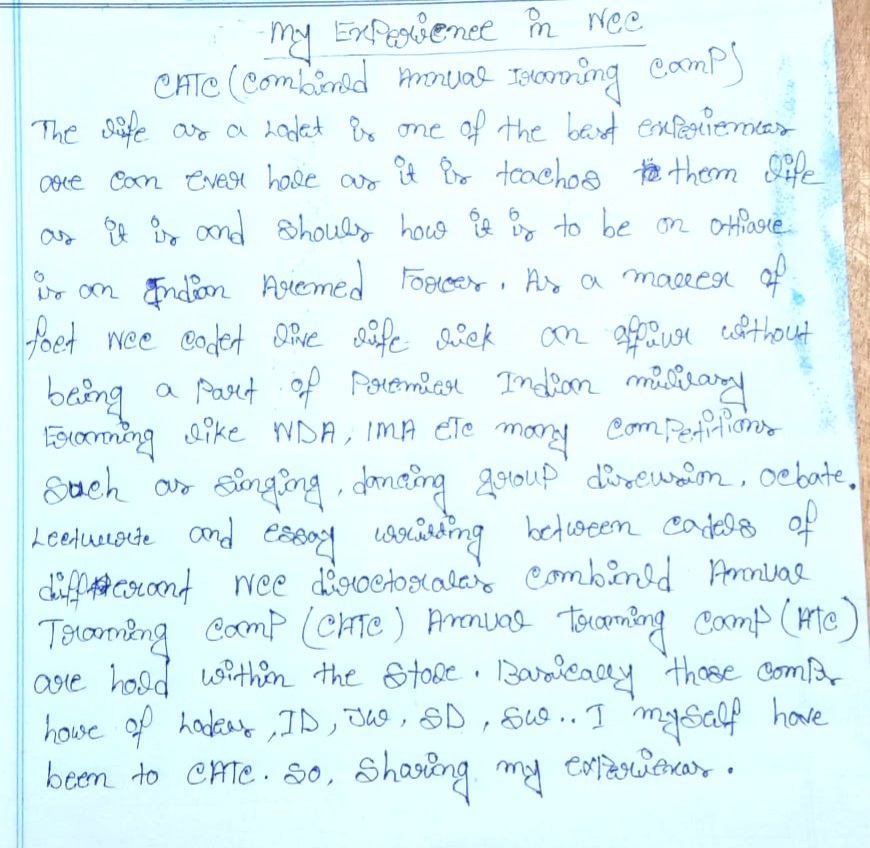 My Experience in NCC
CATC (Combined Annual Training Camp)
The life as a Cadet is one of the best experiences
are can ever have as it is teaches them life
as it is and shows how it is to be an
is an Indian Aremed Forces. As a matter of
fact NCC cadet live life lick an without
being a Part of Premier Indian military
Training like NDA, IMA ETC many Competitions
Such as singing, dancing group discussion, debate.
Lecturate and essay writing between cadets of
differant NCC diroctorates Combined Annual
Training Camp (CATC) Annual training camp (ATC)
are held within the State. Basically those camps
have of , JD, JW, SD, SW.. I myself have
been to CATC. So, Sharing my experiences.